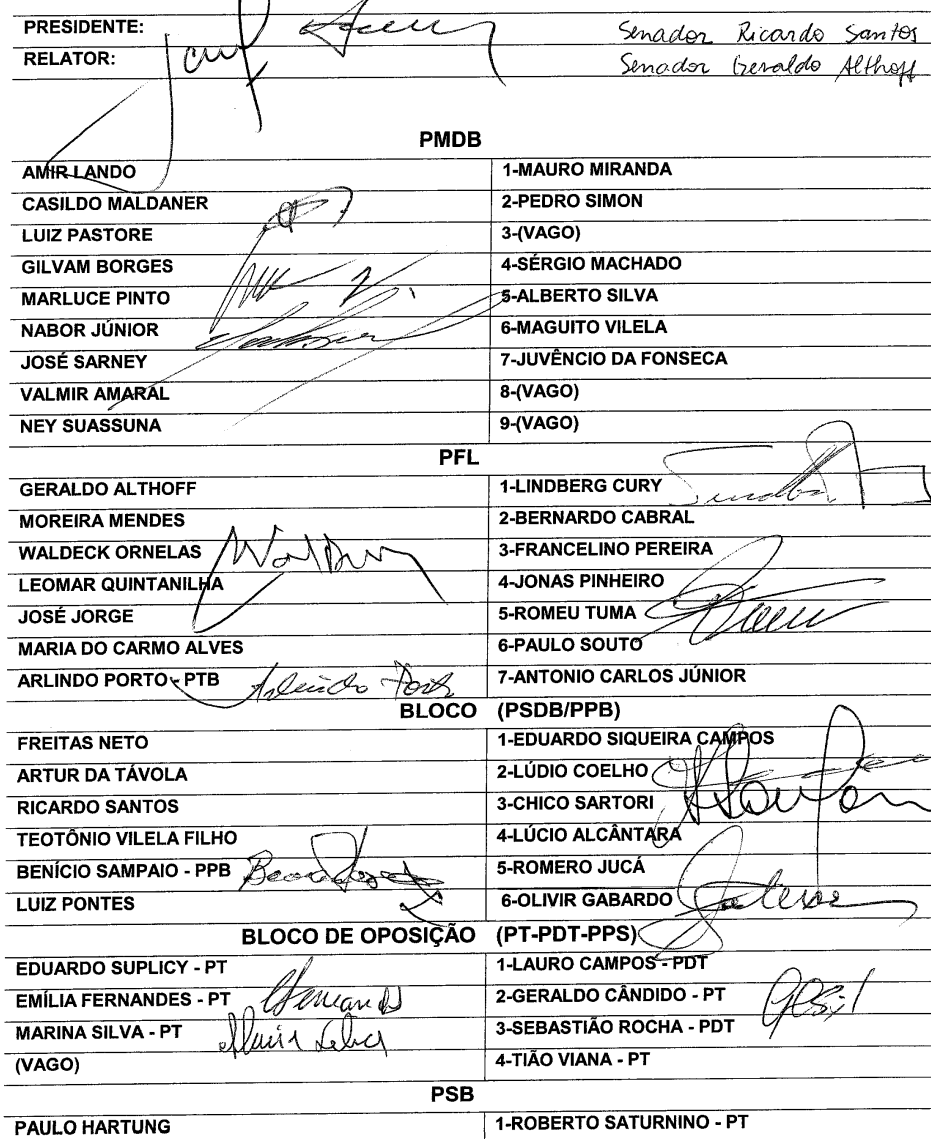 PRESIDENTE: Senador Ricardo Santos
RELATOR: Senador Geraldo Althoff
PMDB
AMIR LANDO 1-MAURO MIRANDA
CASILDO MALDANER 2-PEDRO SIMON
LUIZ PASTORE 3-(VAGO)
GILVAM BORGES 4-SÉRGIO MACHADO
MARLUCE PINTO 5-ALBERTO SILVA
NABOR JÚNIOR 6-MAGUITO VILELA
JOSÉ SARNEY 7-JUVÊNCIO DA FONSECA
VALMIR AMARAL 8-(VAGO)
NEY SUASSUNA 9-(VAGO)
PFL
GERALDO ALTHOFF 1-LINDBERG CURY
MOREIRA MENDES 2-BERNARDO CABRAL
WALDECK ORNELAS 3-FRANCELINO PEREIRA
LEOMAR QUINTANILHA 4-JONAS PINHEIRO
JOSÉ JORGE 5-ROMEU TUMA
MARIA DO CARMO ALVES 6-PAULO SOUTO
ARLINDO PORTO - PTB Arlindo Porto 7-ANTONIO CARLOS JÚNIOR
BLOCO (PSDB/PPB)
FREITAS NETO 1-EDUARDO SIQUEIRA CAMPOS
ARTUR DA TÁVOLA 2-LÚDIO COELHO
RICARDO SANTOS 3-CHICO SARTORI
TEOTÔNIO VILELA FILHO 4-LÚCIO ALCÂNTARA
BENÍCIO SAMPAIO - PPB 5-ROMERO JUCÁ
LUIZ PONTES 6-OLIVIR GABARDO
BLOCO DE OPOSIÇÃO (PT-PDT-PPS)
EDUARDO SUPLICY - PT 1-LAURO CAMPOS - PDT
EMÍLIA FERNANDES - PT 2-GERALDO CÂNDIDO - PT
MARINA SILVA - PT 3-SEBASTIÃO ROCHA - PDT
(VAGO) 4-TIÃO VIANA - PT
PSB
PAULO HARTUNG 1-ROBERTO SATURNINO - PT